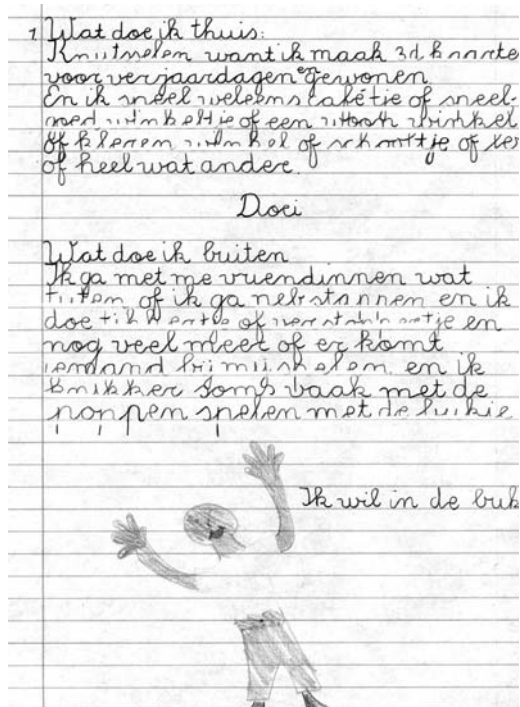 1 Wat doe ik thuis:
Knutselen want ik maak 3d kaarte
voor verjaardagen en gewonen
En ik speel weleens cafétje of speel-
goed winkeltje of een winkel
Of kleren winkel of schooltje of
of heel wat ander.
Doei
Wat doe ik buiten
Ik ga met me vriendinnen wat
of ik ga en ik
doe of verstoppertje en
nog veel meer of er komt
iemand bij mij spelen en ik
knikker soms vaak met de
poppen spelen met de
Ik wil in de buk